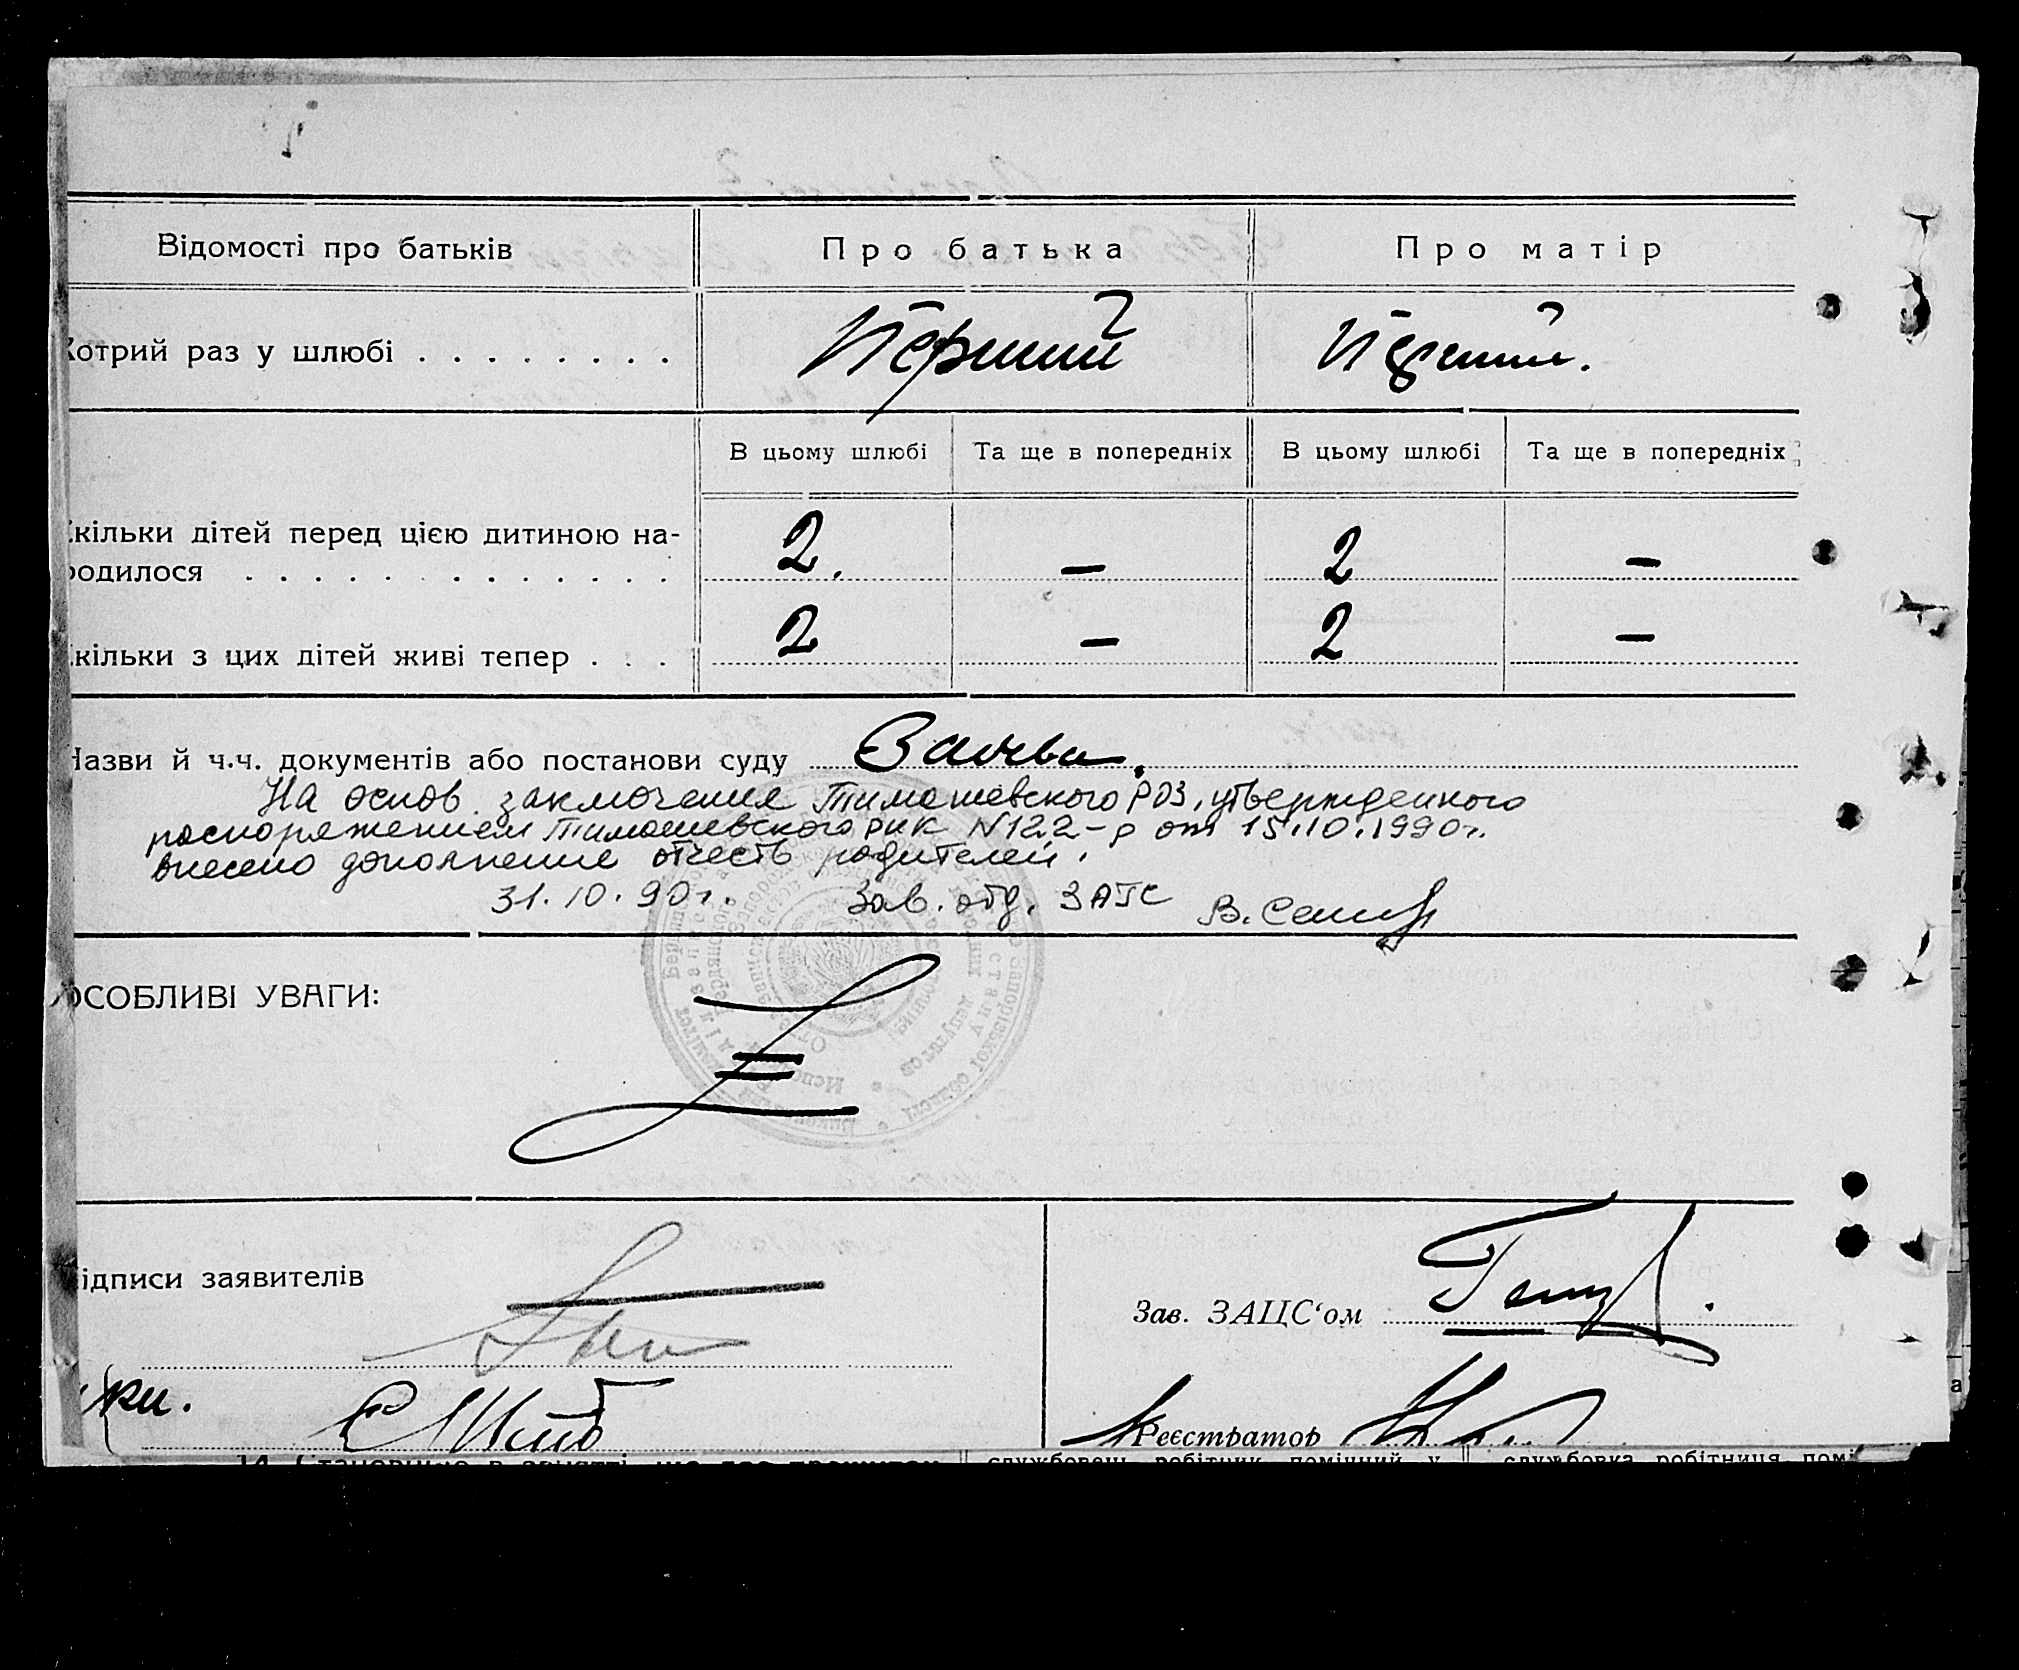 Відомості про батьків Про батька Про матір
Котрий раз у шлюбі . . . . . . . . Перший Перший.
В цьому шлюбі Та ще в попередніх В цьому шлюбі Та ще в попередніх
кільки дітей перед цією дитиною на-
родилося . . . . . . . . . . . . . 2. — 2 —
кільки з цих дітей живі тепер . . . 2 — 2 —
Назви й ч.ч. документів або постанови суду Заява.
На основ. заключения Тимашевского РОЗ, утвержденного
распоряжением Тимашевского рик N122-р от 15.10.1990г.
внесено дополнение отчеств родителей.
31.10.90г. Зав. отд. ЗАГС В.
ОСОБЛИВІ УВАГИ:
ідписи заявителів
Зав. ЗАЦС‘ом
Реєстратор